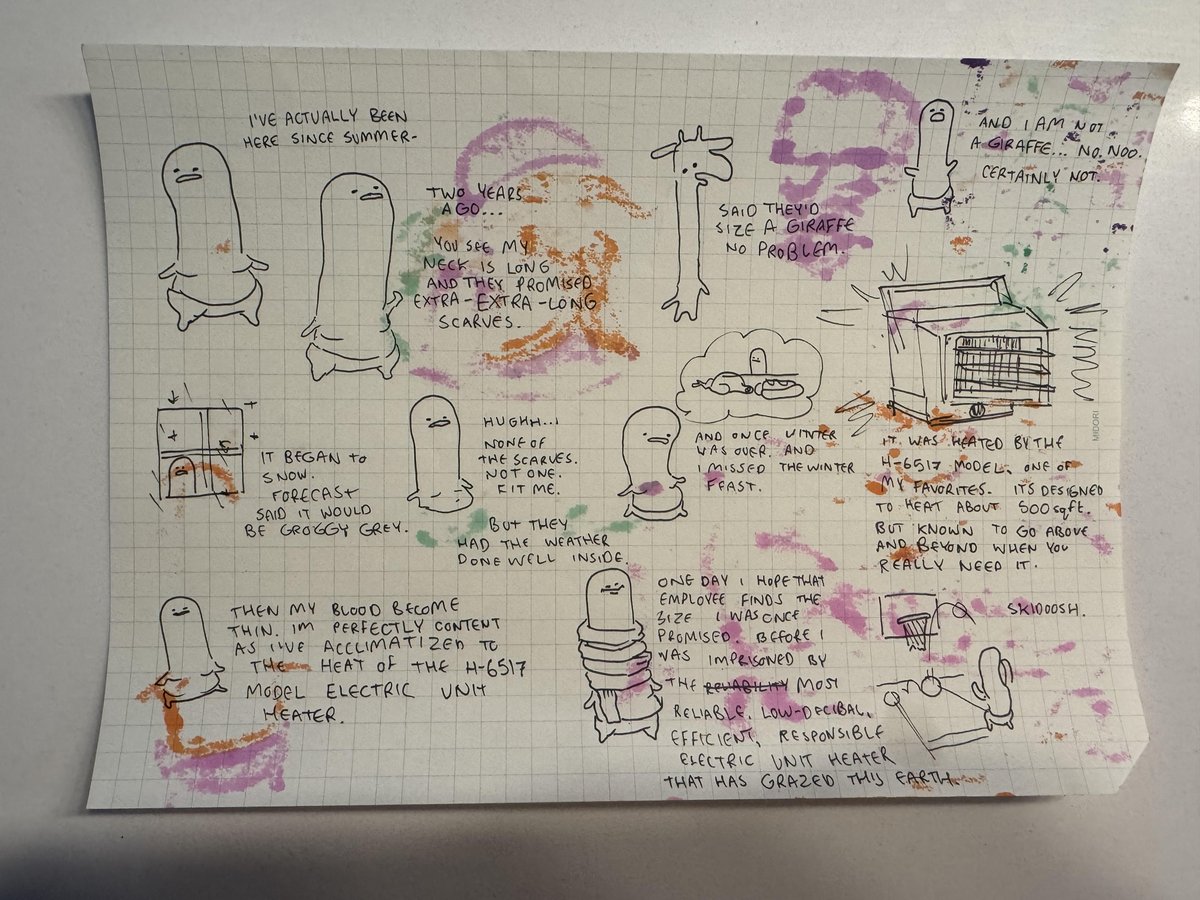 I'VE ACTUALLY BEEN
HERE SINCE SUMMER-
TWO YEARS
AGO...
YOU SEE MY
NECK IS LONG
AND THEY PROMISED
EXTRA-EXTRA-LONG
SCARVES.
SAID THEY'D
SIZE A GIRAFFE
NO PROBLEM.
AND I AM NOT
A GIRAFFE... NO. NOO.
CERTAINLY NOT.
IT BEGAN TO
SNOW.
FORECAST
SAID IT WOULD
BE GROGGY GREY.
HUGHH...
NONE OF
THE SCARVES.
NOT ONE.
FIT ME.
BUT THEY
HAD THE WEATHER
DONE WELL INSIDE.
AND ONCE WINTER
WAS OVER. AND
I MISSED THE WINTER
FEAST.
IT WAS HEATED BY THE
H-6517 MODEL. ONE OF
MY FAVORITES. ITS DESIGNED
TO HEAT ABOUT 500 sqft.
BUT KNOWN TO GO ABOVE
AND BEYOND WHEN YOU
REALLY NEED IT.
MIDORI
THEN MY BLOOD BECOME
THIN. IM PERFECTLY CONTENT
AS I'VE ACCLIMATIZED TO
THE HEAT OF THE H-6517
MODEL ELECTRIC UNIT
HEATER.
ONE DAY I HOPE THAT
EMPLOYEE FINDS THE
SIZE I WAS ONCE
PROMISED. BEFORE I
WAS IMPRISONED BY
THE MOST
RELIABLE, LOW-DECIBAL,
EFFICIENT, RESPONSIBLE
ELECTRIC UNIT HEATER
THAT HAS GRAZED THIS EARTH.
SKIDOOSH.